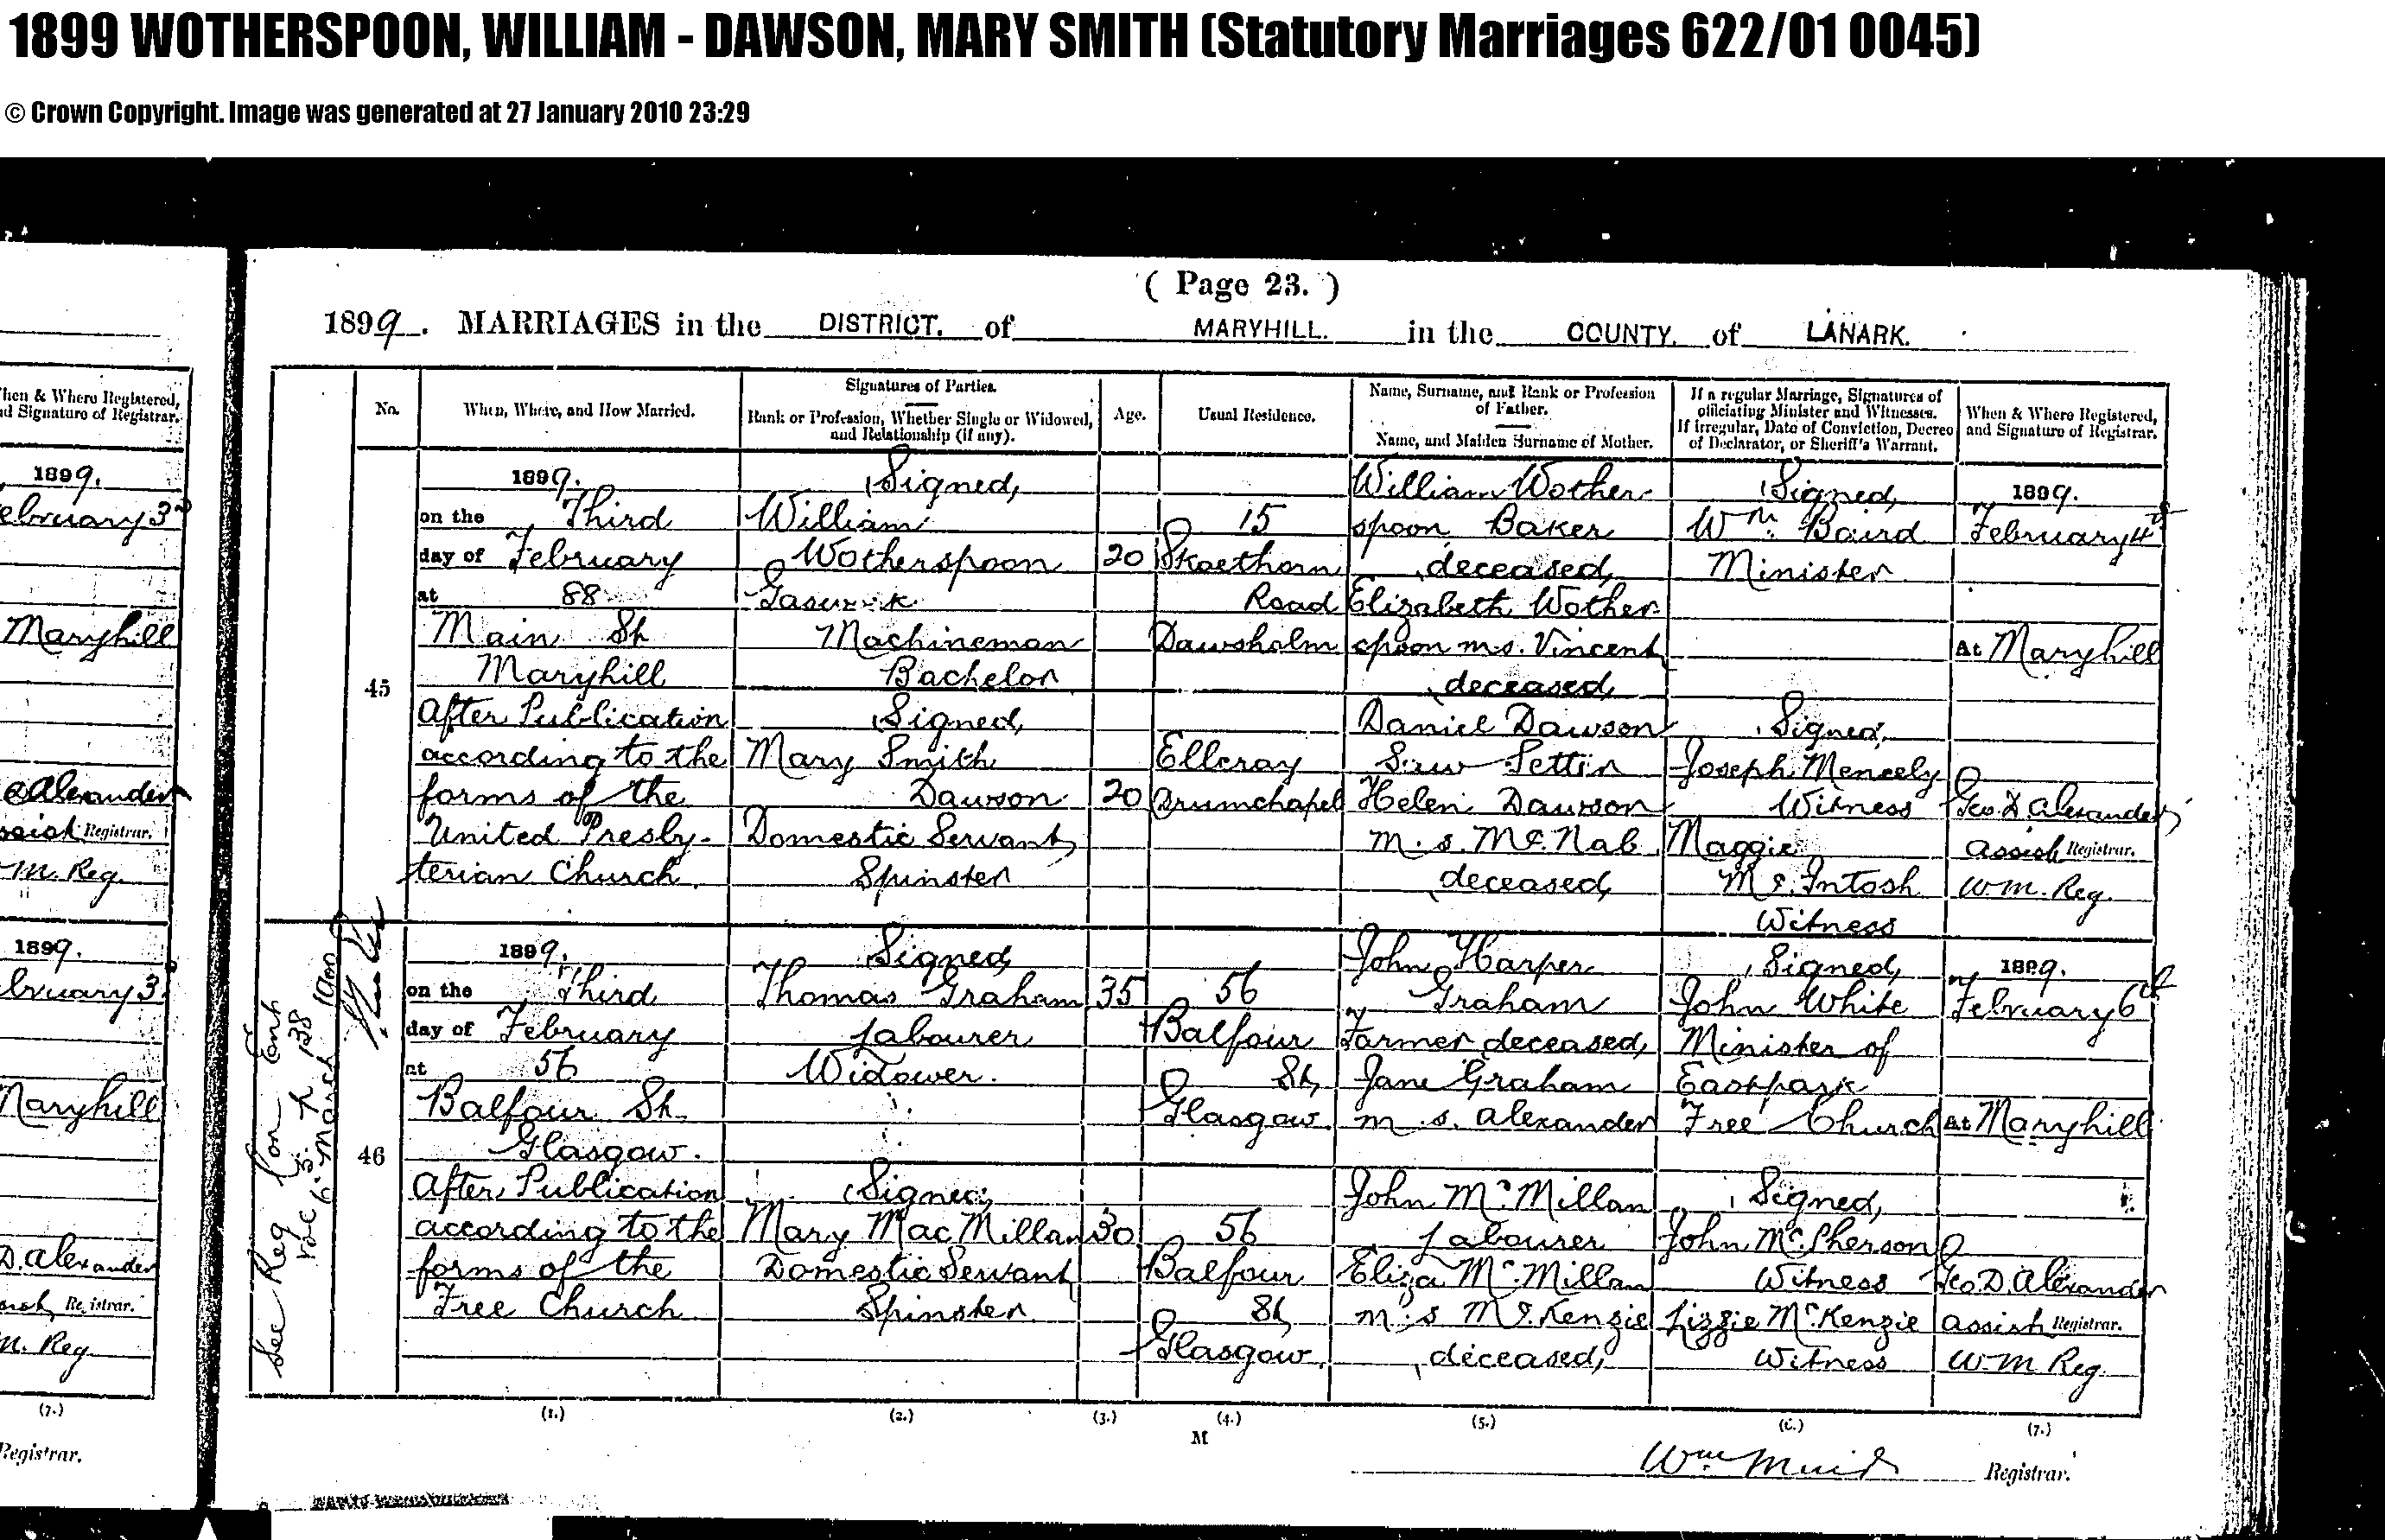 1899 WOTHERSPOON, WILLIAM - DAWSON, MARY SMITH (Statutory Marriages 622/01 0045)
© Crown Copyright. Image was generated at 27 January 2010 23:29
( Page 23. )
1899. MARRIAGES in the DISTRICT. of MARYHILL. in the COUNTY. of LANARK.
hen & Where Registered,
d Signature of Registrar.
1899.
ebruary 3rd
Maryhill
Alexander
Registrar.
m. Reg.
1899.
bruary 3.
Maryhill
D. Alexander
Registrar.
m. Reg
(7.)
Registrar.
No.
When, Where, and How Married.
Signatures of Parties.
Rank or Profession, Whether Single or Widowed,
and Relationship (if any).
Age.
Usual Residence.
Name, Surname, and Rank or Profession
of Father.
Name, and Maiden Surname of Mother.
If a regular Marriage, Signatures of
officiating Minister and Witnesses.
If Irregular, Date of Conviction, Decree
of Declarator, or Sheriff's Warrant.
When & Where Registered,
and Signature of Registrar.
45
1899.
on the Third
day of February
at 88
Main St
Maryhill
After Publication
according to the
forms of the
United Presby-
terian Church
Signed,
William
Wotherspoon
Machineman
Bachelor
Signed,
Mary Smith
Dawson
Domestic Servant
Spinster
20
20
15
Skaethorn
Road
Dawsholm
Elleray
Drumchapel
William Wother-
spoon Baker
deceased,
Elizabeth Wother-
spoon m.s. Vincent
deceased,
Daniel Dawson
Helen Dawson
m.s. McNab
deceased,
Signed,
Wm. Baird
Minister
Signed,
Joseph Meneely
Witness
Maggie
McIntosh
Witness
1899.
February 4th
At Maryhill
Geo. D. Alexander
Assist Registrar.
W.M. Reg.
46
1899.
on the Third
day of February
at 56
Balfour St.
Glasgow.
After Publication
according to the
forms of the
Free Church
Signed,
Thomas Graham
Labourer
Widower.
Signed,
Mary MacMillan
Domestic Servant
Spinster
35
30
56
Balfour
St,
Glasgow.
56
Balfour
St,
Glasgow.
John Harper
Graham
Farmer deceased,
Jane Graham
m.s. Alexander
John McMillan
Labourer
Eliza McMillan
m.s. McKenzie
deceased,
Signed,
John White
Minister of
Eastpark
Free Church
Signed,
John McPherson
Witness
Lizzie McKenzie
Witness
1899.
February 6th
At Maryhill
Geo. D. Alexander
Assist Registrar.
W M Reg.
(1.) (2.) (3.) (4.) (5.) (6.) (7.)
M
Wm Muir Registrar.